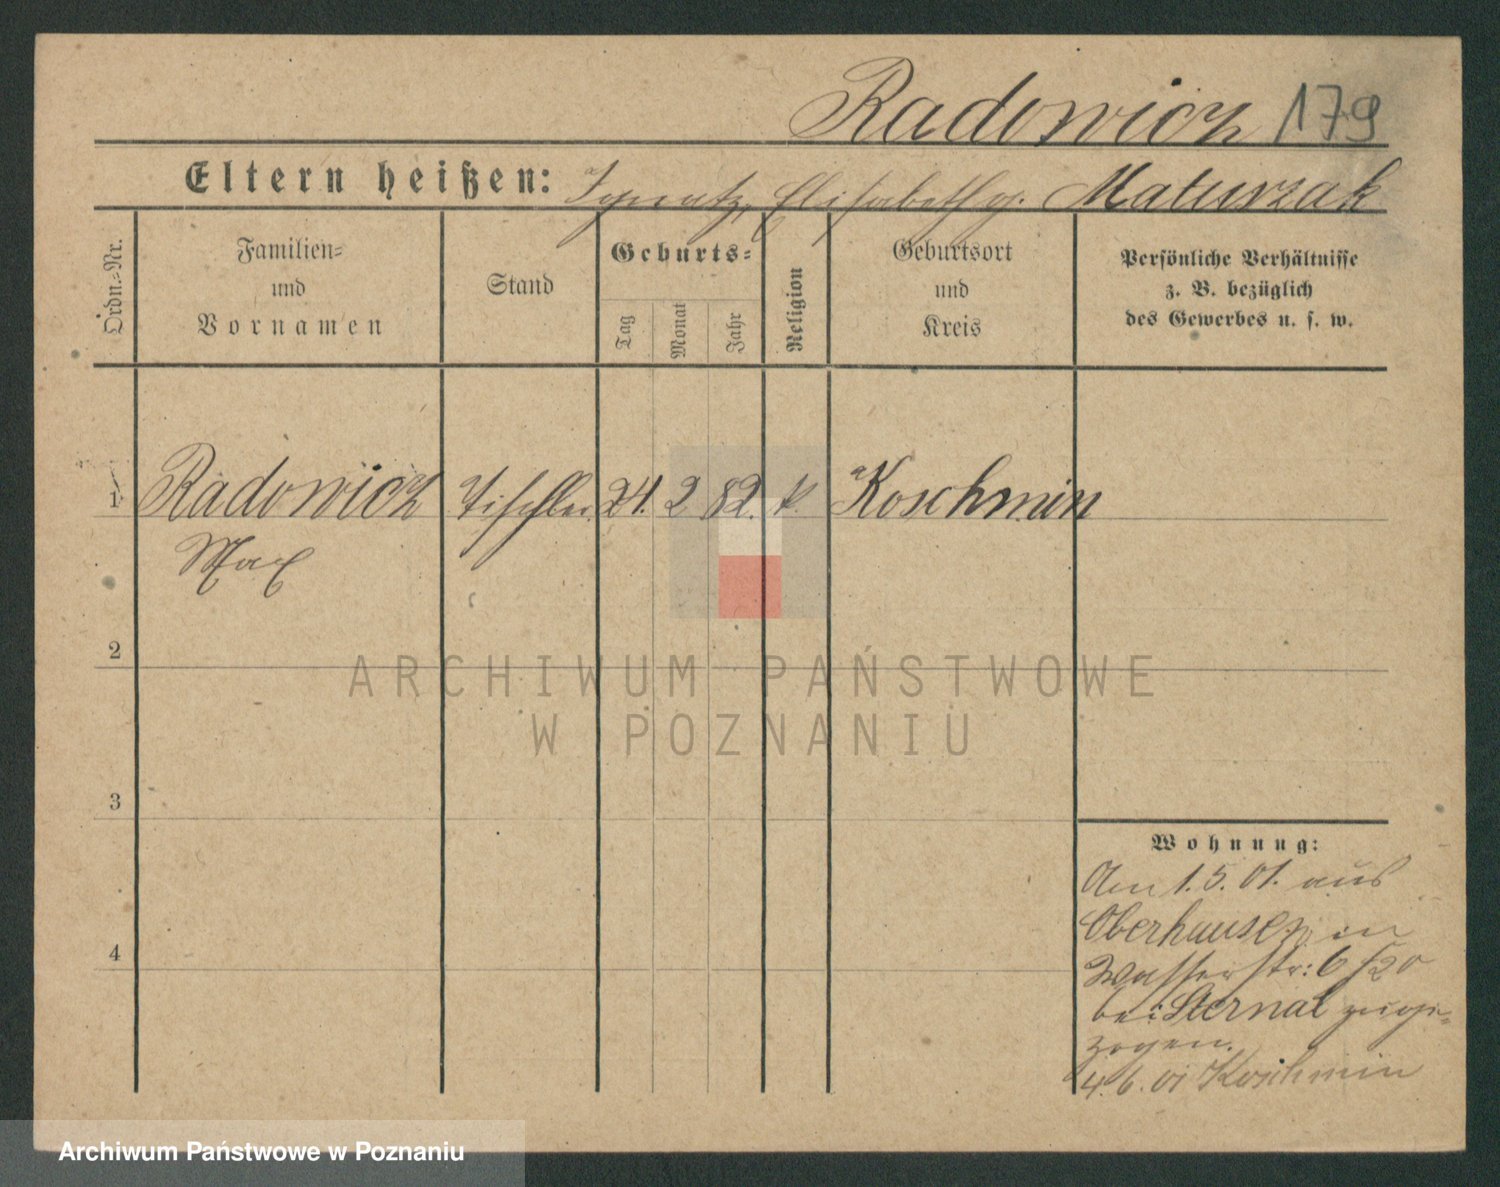 Radowicz 179
Eltern heißen: Ignatz, Elisabeth g. Maturzak
Ordn.=Nr.
Familien=
und
Vornamen
Stand
Geburts=
Tag
Monat
Jahr
Religion
Geburtsort
und
Kreis
Persönliche Verhältnisse
z. B. bezüglich
des Gewerbes u. s. w.
1 Radowicz Tischler 24. 2 82. k. Koschmin
Max
2
3
4
Wohnung:
Am 1. 5. 01. aus
Oberhausen in
Wasserstr: 6/20
bei Sternal zuge=
zogen.
4. 6. 01 Koschmin
ARCHIWUM PAŃSTWOWE
W POZNANIU
Archiwum Państwowe w Poznaniu